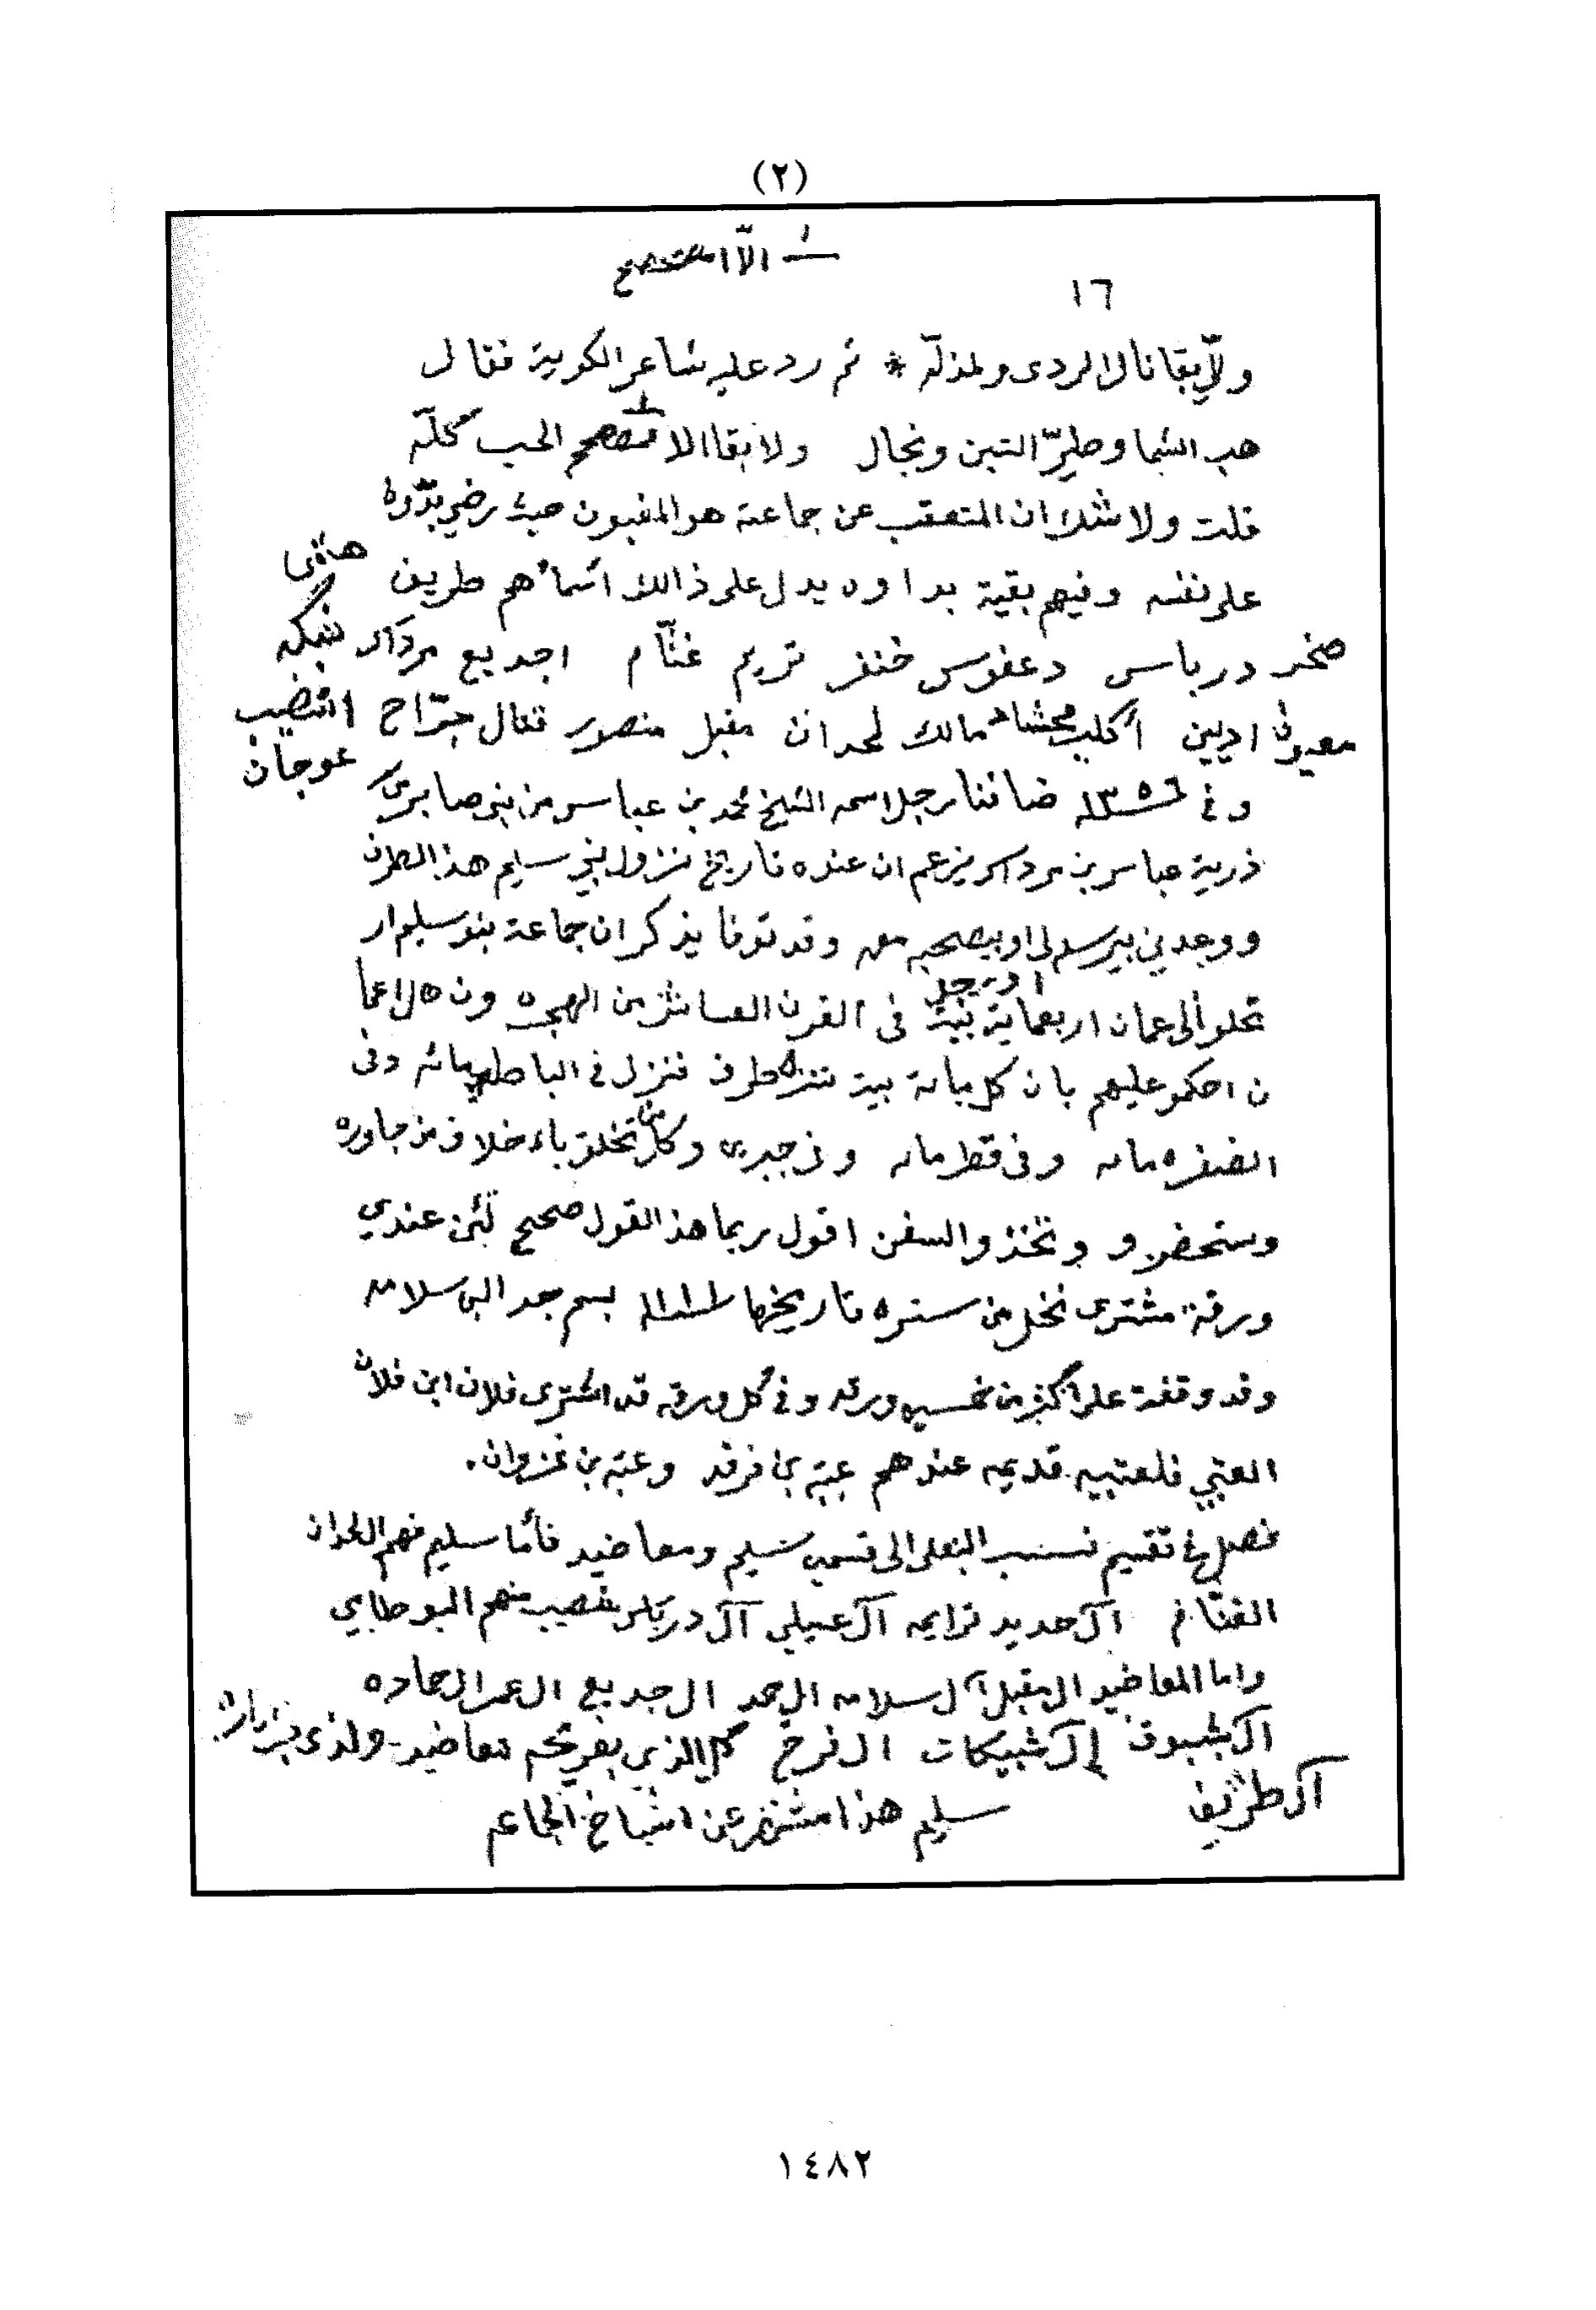 (٢)
١ الّا
١٦
ولّا بقا نا الا الردى ولمذلّه * ثم رد عليه شاعر الكويت فقال
هب الشما وطيّر التبن ونجال ولا بقا الا الحب كلّه
قلت ولا شك ان المتعقب عن جماعة هو المغبون حيث رضي
على نفسه وفيهم بقية بداوه يدل على ذالك اسماؤهم طريف
صخر درباس دعفوس خنفر تريم غنّام اجديع مرداس
معيوف ادبين أكلب مالك لحدان مقبل منصور قتال جرّاح
عوجان
وفي ١٣٥٦ ضافنا رجل اسمه الشيخ محمد بن عباس من بني صابر من
ذرية عباس بن مرداس يزعم ان عنده تاريخ نزول بني سليم هذا الطرف
ووعدني يرسله لي او يصحبه معه وقد توفا يذكر ان جماعة بنو سليم ار
تحلو الى عمان اربعماية بيت في القرن العاشر من الهجره ون
ن احكمو عليهم بان كل ماية بيت طرف فنزل في الباطنه مائه وفي
الضفره مايه وفي قطر مايه وفي جبرى وكلن تخلق باء خلاق من جاوره
وستحضرو وتخذو السفن اقول ربما هذا القول صحيح لئن عندي
ورقة مشترى نخل من ستره تاريخها ١١١١ بسم جد البن سلامه
وقد وقفة على اكثر من خمسين ورقه وفي كل ورقه قد اشترى فلان ابن فلان
العتبي فلعتبيه قديمه عندهم عتبة بن فرقد وعتبه بن غزوان.
فصل في تقسيم نسب البنعلي الى قسمين سليم ومعاضيد فأما سليم فهم اللحدان
الغتّام آل حديد ترايمه آل عسيلي آل درباس منهم البوطابي
واما المعاضيد ال مقبل آل سلامه ال حمد ال جديع ال عمر ال حماده
آل بشبوق آل شبيكات ال فرج كل الذي بفريحه معاضيد ولذي بزباره
آل طريف سليم هذا مشتهر عن اشياخ الجماعه
١٤٨٢